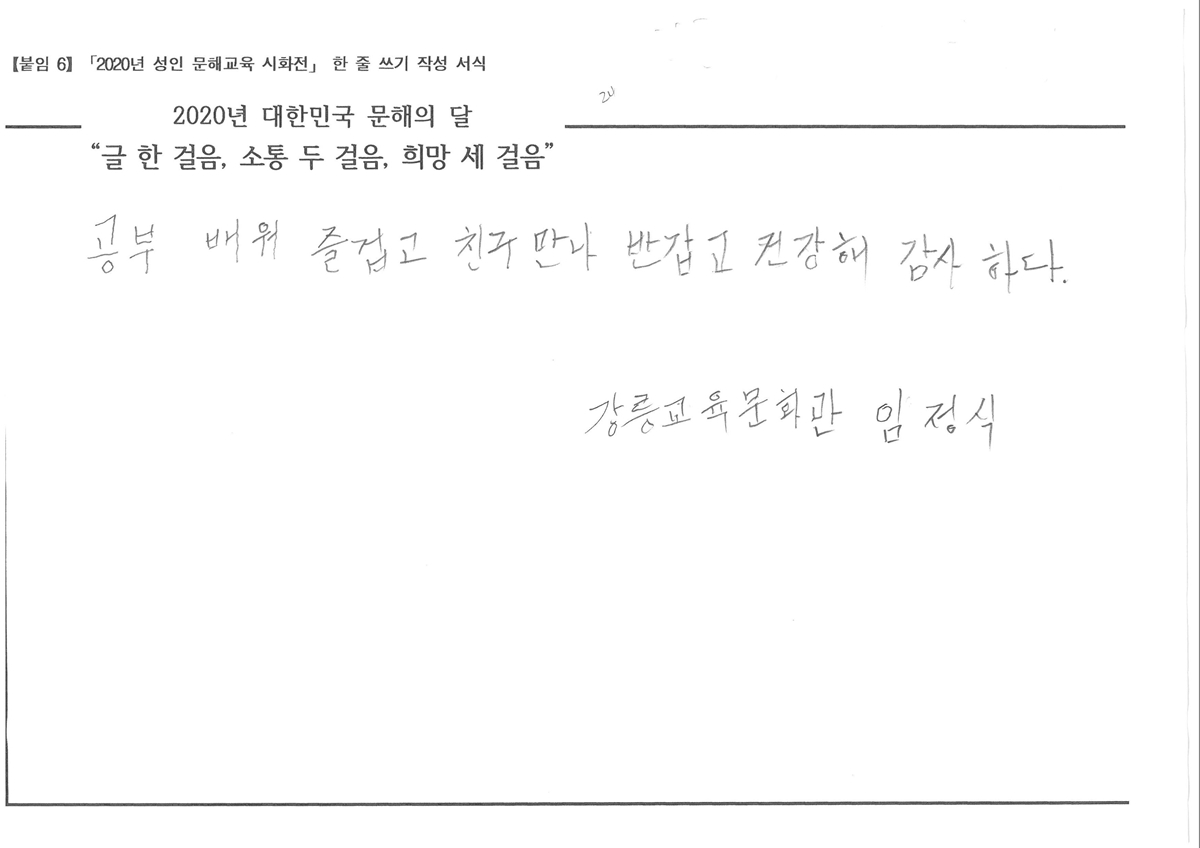 【붙임 6】 「2020년 성인 문해교육 시화전」 한 줄 쓰기 작성 서식
20
2020년 대한민국 문해의 달
“글 한 걸음, 소통 두 걸음, 희망 세 걸음”
공부 배워 즐겁고 친구만나 반갑고 건강해 감사 하다.
강릉교육문화관 임정식